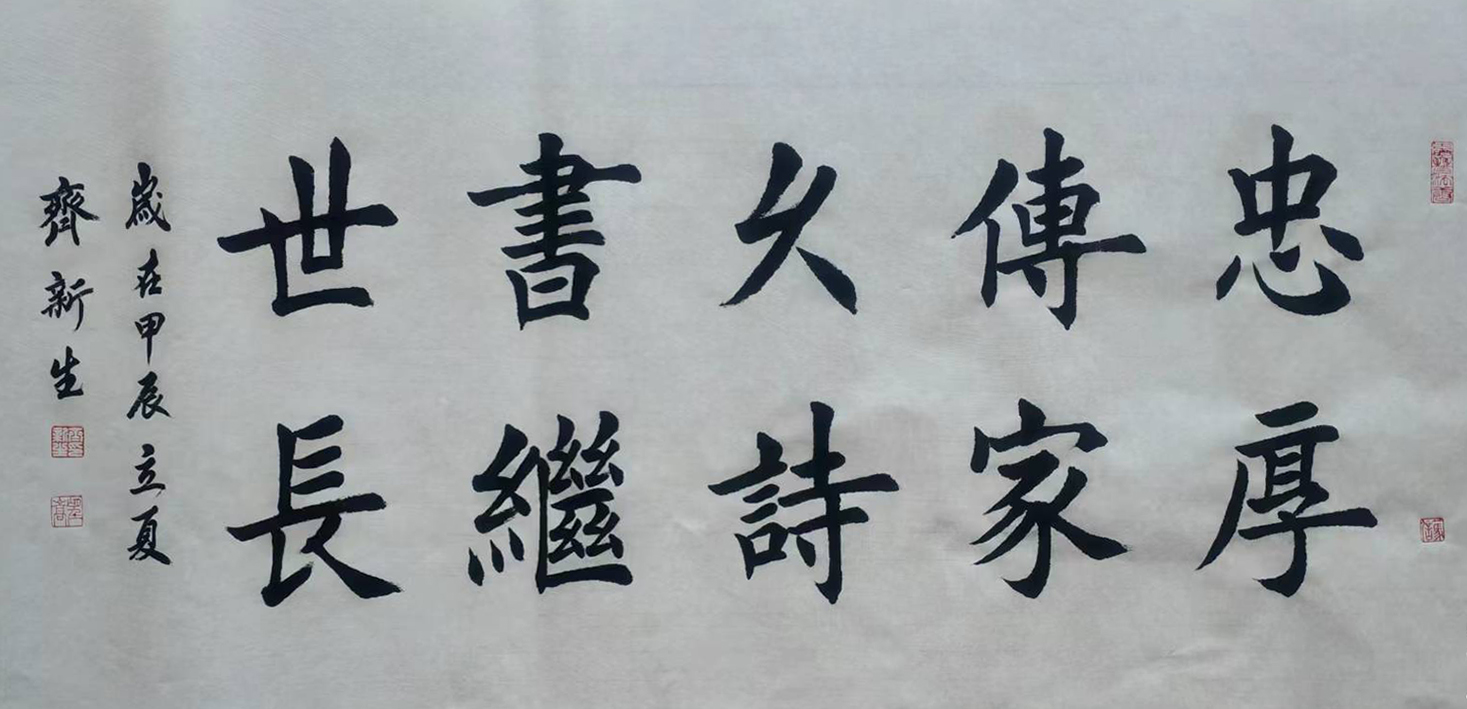 忠厚
傳家
久詩
書繼
世長
歲在甲辰立夏
齊新生